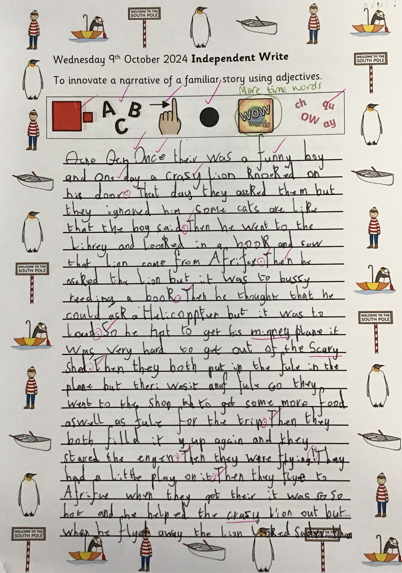 WELCOME TO THE SOUTH POLE
Wednesday 9th October 2024 Independent Write
To innovate a narrative of a familiar story using adjectives.
More time words
A B C
WOW words
ch qu
ow ay
Once their was a funny boy
and One day a crasy Lion knocked on
his door. That day they asked them but
they ignored him some cats are like
that the boy said. Then he went to the
Librey and Looked in a book and saw
that Lion come from Afrifue. Then he
asked the Lion but it was to bussy
reeding a book. Then he thought that he
could ask a Helicoppter but it was to
Loud. So he hat to get his minney plane it
was very hard to get out of the Scary
Shed. Then they both put in the fule in the
plane but theri wasit anuf fule So they
went to the Shop to get some more food
aswell as fule for the trip. Then they
both filld it up again and they
stared the engern. Then they were flying! They
had a little play on it. Then they flye to
Afrifue when they got their it was So So
hot and he helped the crasy Lion out but
when he flyed away the Lion